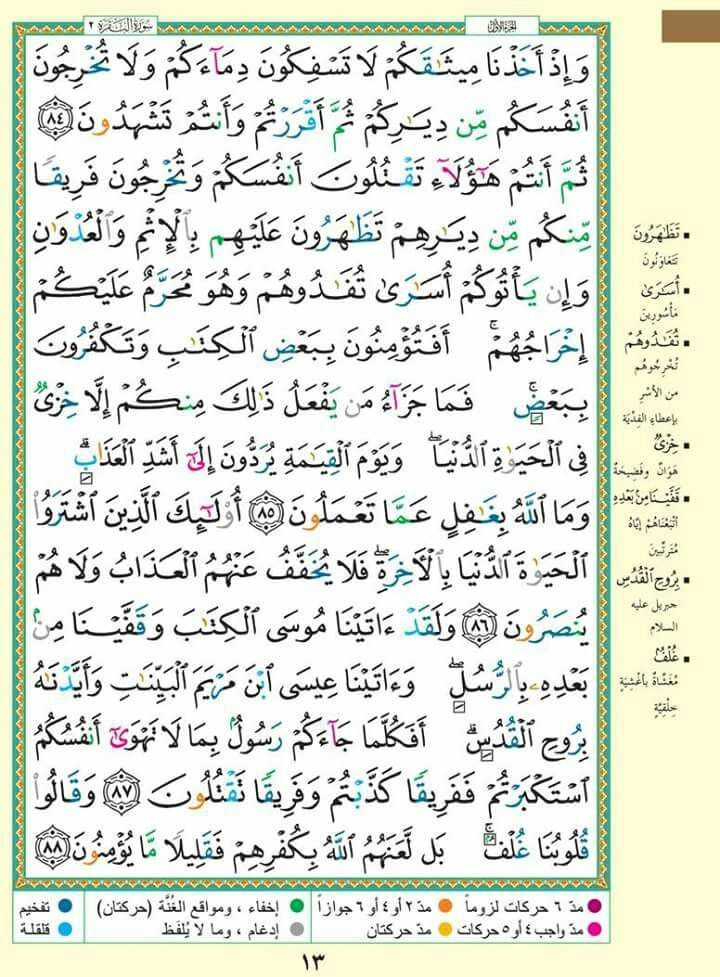 سُورَةُ البَقَرَة ٢
الجزء الأول
وَإِذْ أَخَذْنَا مِيثَٰقَكُمْ لَا تَسْفِكُونَ دِمَآءَكُمْ وَلَا تُخْرِجُونَ
أَنفُسَكُم مِّن دِيَٰرِكُمْ ثُمَّ أَقْرَرْتُمْ وَأَنتُمْ تَشْهَدُونَ ٨٤
ثُمَّ أَنتُمْ هَٰٓؤُلَآءِ تَقْتُلُونَ أَنفُسَكُمْ وَتُخْرِجُونَ فَرِيقًا
مِّنكُم مِّن دِيَٰرِهِمْ تَظَٰهَرُونَ عَلَيْهِم بِٱلْإِثْمِ وَٱلْعُدْوَٰنِ
وَإِن يَأْتُوكُمْ أُسَٰرَىٰ تُفَٰدُوهُمْ وَهُوَ مُحَرَّمٌ عَلَيْكُمْ
إِخْرَاجُهُمْ ۚ أَفَتُؤْمِنُونَ بِبَعْضِ ٱلْكِتَٰبِ وَتَكْفُرُونَ
بِبَعْضٍ ۚ فَمَا جَزَآءُ مَن يَفْعَلُ ذَٰلِكَ مِنكُمْ إِلَّا خِزْىٌ
فِى ٱلْحَيَوٰةِ ٱلدُّنْيَا ۖ وَيَوْمَ ٱلْقِيَٰمَةِ يُرَدُّونَ إِلَىٰٓ أَشَدِّ ٱلْعَذَابِ ۗ
وَمَا ٱللَّهُ بِغَٰفِلٍ عَمَّا تَعْمَلُونَ ٨٥ أُو۟لَٰٓئِكَ ٱلَّذِينَ ٱشْتَرَوُا۟
ٱلْحَيَوٰةَ ٱلدُّنْيَا بِٱلْأَخِرَةِ ۖ فَلَا يُخَفَّفُ عَنْهُمُ ٱلْعَذَابُ وَلَا هُمْ
يُنصَرُونَ ٨٦ وَلَقَدْ ءَاتَيْنَا مُوسَى ٱلْكِتَٰبَ وَقَفَّيْنَا مِنۢ
بَعْدِهِۦ بِٱلرُّسُلِ ۖ وَءَاتَيْنَا عِيسَى ٱبْنَ مَرْيَمَ ٱلْبَيِّنَٰتِ وَأَيَّدْنَٰهُ
بِرُوحِ ٱلْقُدُسِ ۗ أَفَكُلَّمَا جَآءَكُمْ رَسُولٌۢ بِمَا لَا تَهْوَىٰٓ أَنفُسُكُمُ
ٱسْتَكْبَرْتُمْ فَفَرِيقًا كَذَّبْتُمْ وَفَرِيقًا تَقْتُلُونَ ٨٧ وَقَالُوا۟
قُلُوبُنَا غُلْفٌۢ ۚ بَل لَّعَنَهُمُ ٱللَّهُ بِكُفْرِهِمْ فَقَلِيلًا مَّا يُؤْمِنُونَ ٨٨
■ تَظَٰهَرُونَ
تَتَعَاوَنُونَ
■ أُسَٰرَىٰ
مَأْسُورِينَ
■ تُفَٰدُوهُمْ
تُخْرِجُوهُم
من الأَسْرِ
بإعطاءِ الفِدْيَة
■ خِزْىٌ
هَوَانٌ وفَضِيحَةٌ
■ قَفَّيْنَا مِنۢ بَعْدِهِ
أَتْبَعْنَاهُمْ إيّاهُ
مُتَرتِّبِينَ
■ بِرُوحِ ٱلْقُدُسِ
جبريل عليه
السلام
■ غُلْفٌ
مُغَشَّاةٌ بأَغْشِيَةٍ
خِلْقِيَّةٍ
مدّ ٦ حركات لزوماً
مدّ ٢ أو ٤ أو ٦ جوازاً
إخفاء ، ومواقع الغُنَّة (حركتان)
تفخيم
مدّ واجب ٤ أو ٥ حركات
مدّ حركتان
إدغام ، وما لا يُلفَظ
قلقلة
١٣